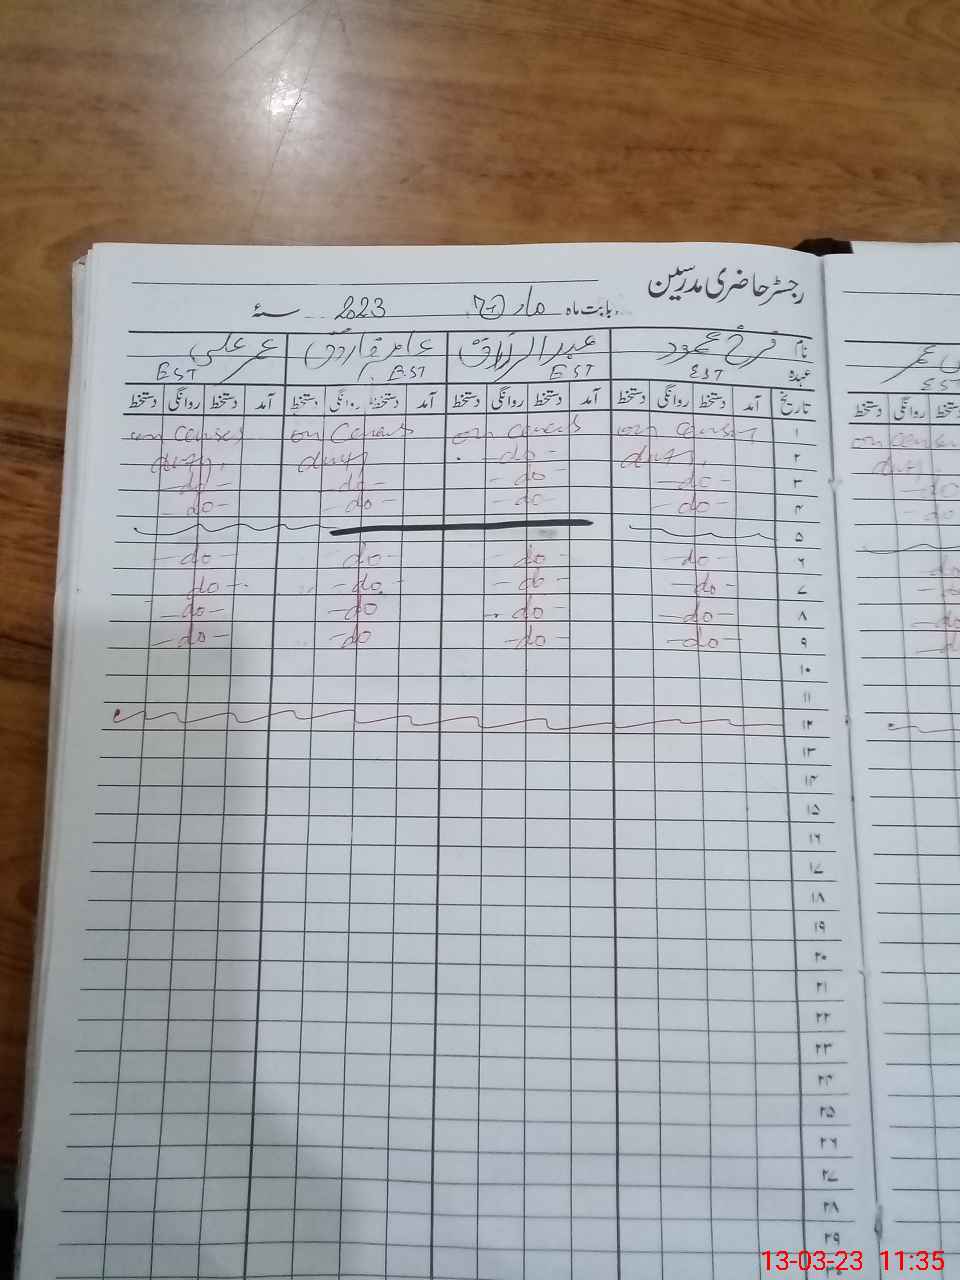 رجسٹر حاضری مدرسین
بابت ماہ مارچ 2023 سنۂ
نام فرخ محمود عبدالرزاق عامر فاروق عمر علی
عہدہ EST EST EST EST
تاریخ آمد دستخط روانگی دستخط آمد دستخط روانگی دستخط آمد دستخط روانگی دستخط آمد دستخط روانگی دستخط
۱ on census on census on census on census
۲ duty, -do- duty duty,
۳ -do- -do -do- -do-
۴ -do- -do- -do- -do-
۵
۶ -do- -do- -do- -do-
۷ -do- -do- -do- do-
۸ -do- -do- -do -do-
۹ -do- -do- -do -do-
۱۰
۱۱
۱۲
۱۳
۱۴
۱۵
۱۶
۱۷
۱۸
۱۹
۲۰
۲۱
۲۲
۲۳
۲۴
۲۵
۲۶
۲۷
۲۸
۲۹
عمر
EST
روانگی دستخط
on census
duty
-do
-do-
-do
-do
-do
-do
13-03-23 11:35